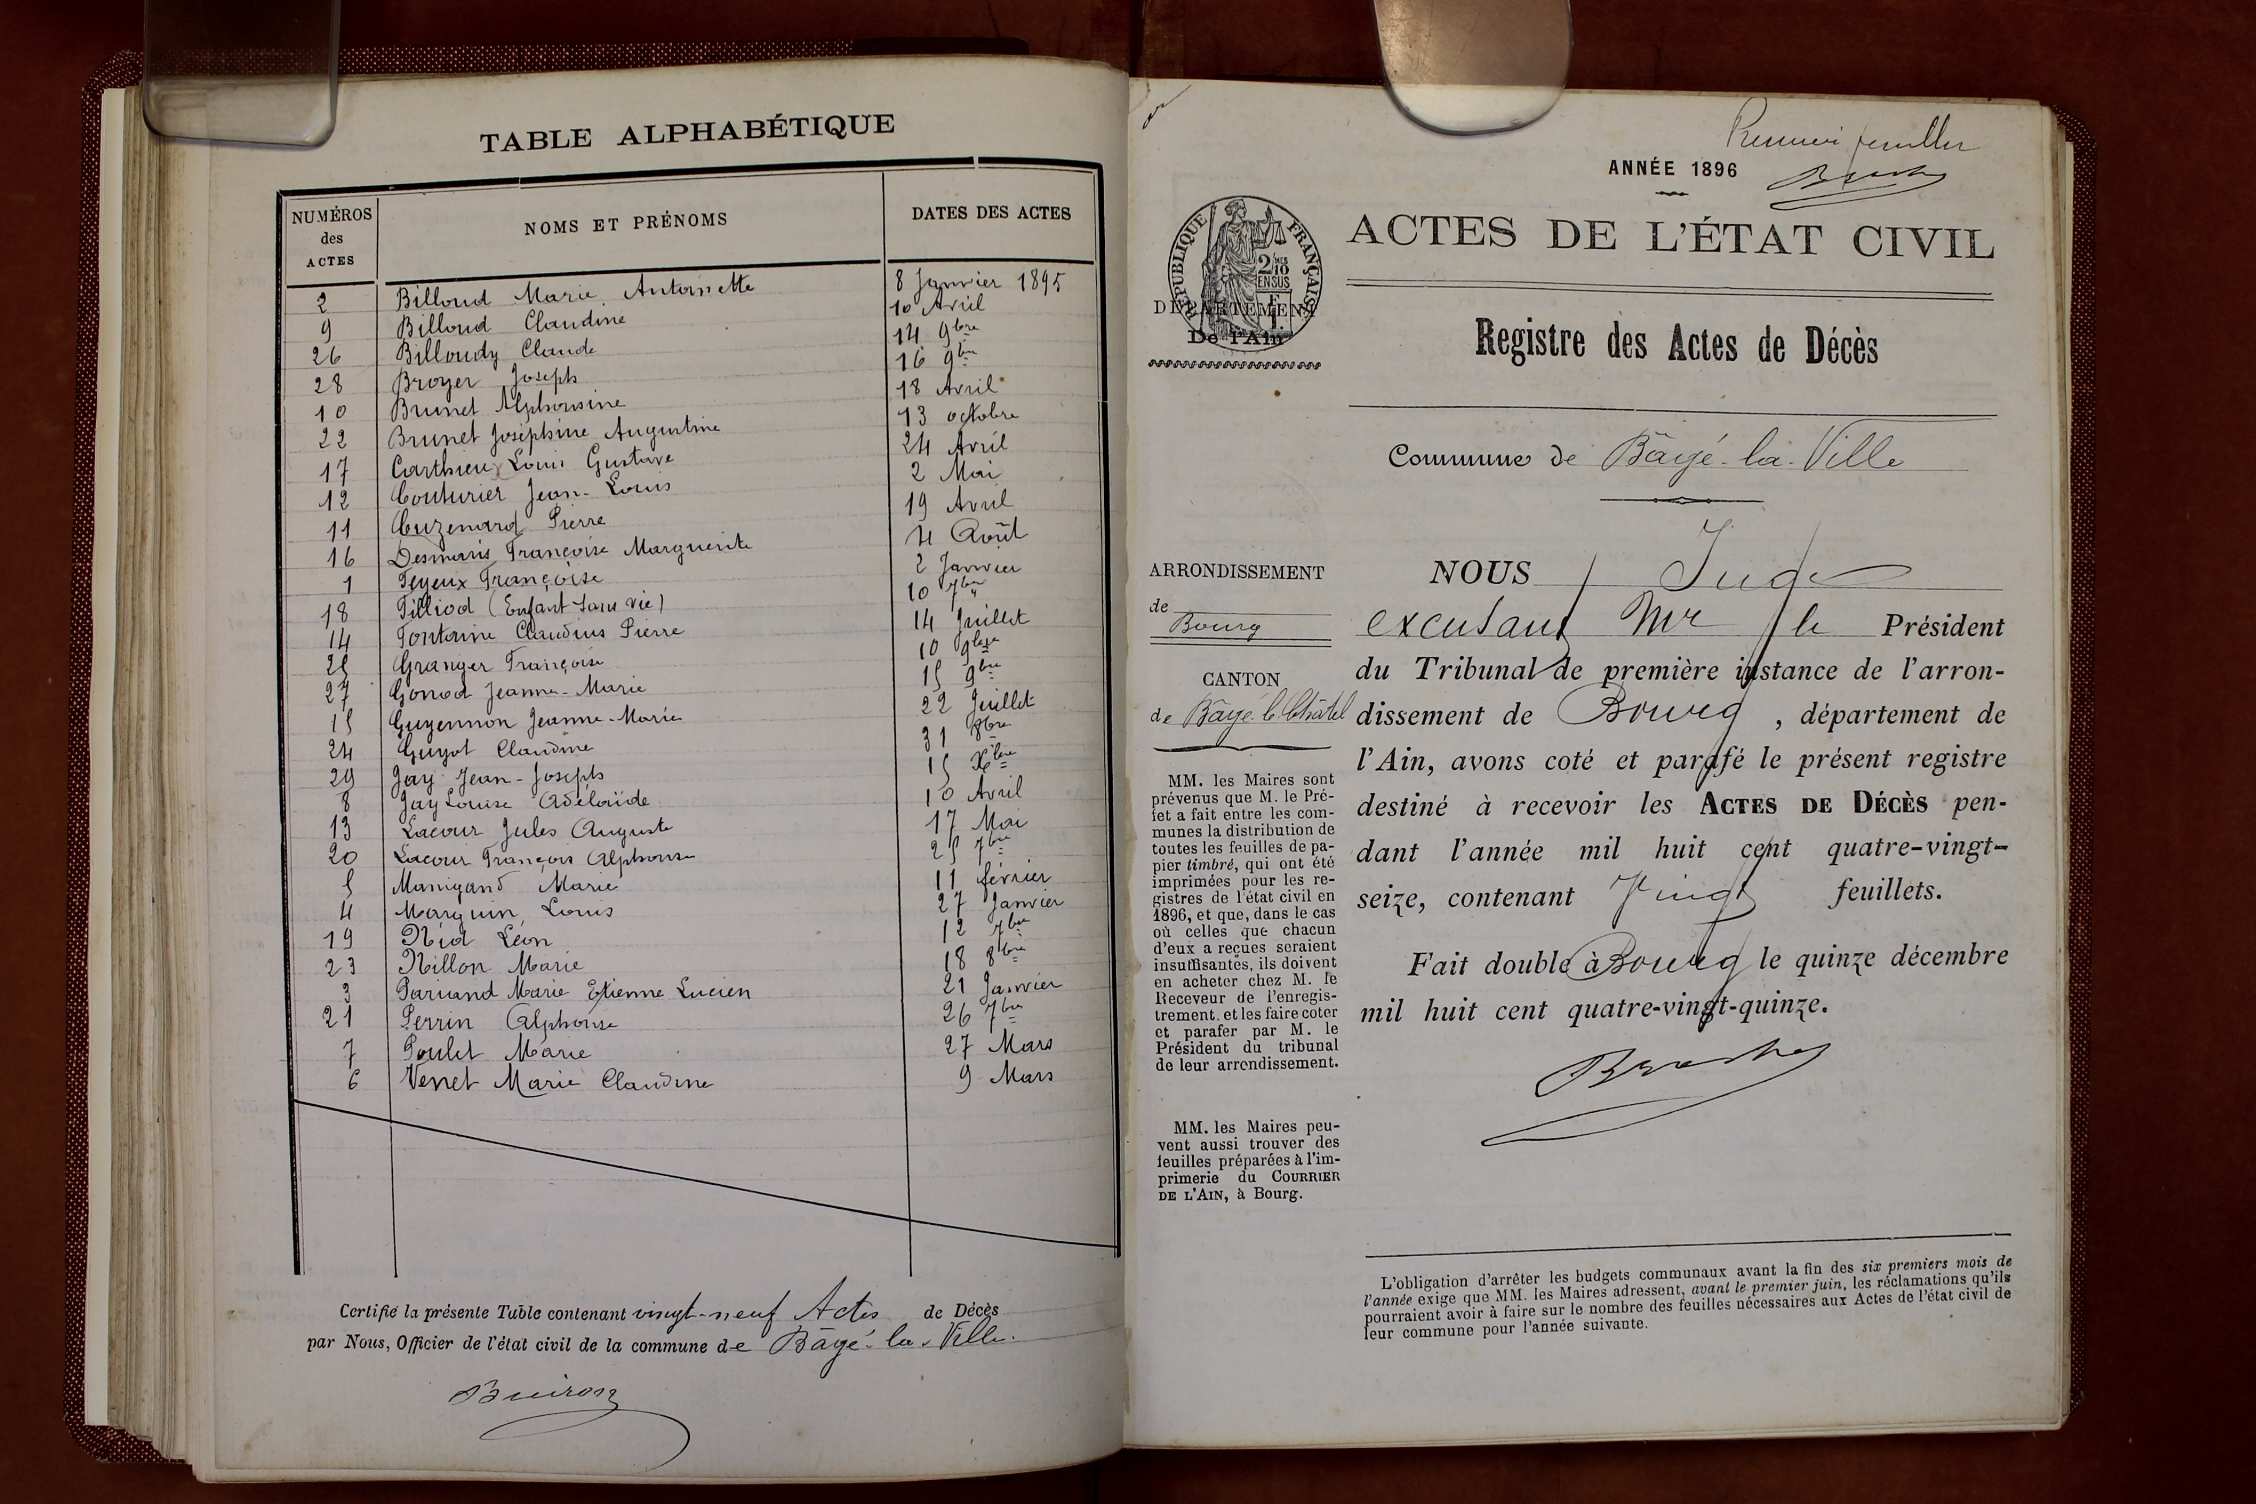 TABLE ALPHABÉTIQUE
NUMÉROS des ACTES NOMS ET PRÉNOMS DATES DES ACTES
2 Billoud Marie Antoinette 8 Janvier 1895
9 Billoud Claudine 10 Avril
26 Billoudy Claude 14 9bre
28 Broyer Joseph 16 9bre
10 Brunet Alphonsine 18 Avril
22 Brunet Joséphine Augustine 13 octobre
17 Carthieux Louis Gustave 24 Avril
12 Couturier Jean-Louis 2 Mai
11 Cuzenard Pierre 19 Avril
16 Desmaris Françoise Marguerite 4 Août
1 Feyeux Françoise 2 Janvier
18 Filliod (Enfant sans vie) 10 7bre
14 Fontaine Claudius Pierre 14 Juillet
25 Granger Françoise 10 9bre
27 Gonod Jeanne-Marie 15 9bre
15 Guyennon Jeanne-Marie 22 Juillet
24 Guyot Claudine 31 8bre
29 Jay Jean-Joseph 15 Xbre
8 Jay Louise Adélaïde 10 Avril
13 Lacour Jules Auguste 17 Mai
20 Lacour François Alphonse 25 7bre
5 Manigand Marie 11 février
4 Marguin, Louis 27 Janvier
19 Nid Léon 12 7bre
23 Nillon Marie 18 8bre
3 Pariand Marie Etienne Lucien 21 Janvier
21 Perrin Alphonse 26 7bre
7 Poulet Marie 27 Mars
6 Venet Marie Claudine 9 Mars
Certifié la présente Table contenant vingt-neuf Actes de Décès
par Nous, Officier de l'état civil de la commune de Bâgé-la-Ville.
Premier feuillet
ANNÉE 1896
ACTES DE L'ÉTAT CIVIL
RÉPUBLIQUE FRANÇAISE
2/10 EN SUS
DÉPARTEMENT
De l'Ain
Registre des Actes de Décès
Commune de Bâgé-la-Ville
ARRONDISSEMENT
de
Bourg
CANTON
de Bâgé-le-Châtel
MM. les Maires sont
prévenus que M. le Pré-
fet a fait entre les com-
munes la distribution de
toutes les feuilles de pa-
pier timbré, qui ont été
imprimées pour les re-
gistres de l'état civil en
1896, et que, dans le cas
où celles que chacun
d'eux a reçues seraient
insuffisantes, ils doivent
en acheter chez M. le
Receveur de l'enregis-
trement, et les faire coter
et parafer par M. le
Président du tribunal
de leur arrondissement.
MM. les Maires peu-
vent aussi trouver des
feuilles préparées à l'im-
primerie du COURRIER
DE L'AIN, à Bourg.
NOUS Juge
excusant Mr le Président
du Tribunal de première instance de l'arron-
dissement de Bourg, département de
l'Ain, avons coté et parafé le présent registre
destiné à recevoir les ACTES DE DÉCÈS pen-
dant l'année mil huit cent quatre-vingt-
seize, contenant Vingt feuillets.
Fait double à Bourg le quinze décembre
mil huit cent quatre-vingt-quinze.
L'obligation d'arrêter les budgets communaux avant la fin des six premiers mois de
l'année exige que MM. les Maires adressent, avant le premier juin, les réclamations qu'ils
pourraient avoir à faire sur le nombre des feuilles nécessaires aux Actes de l'état civil de
leur commune pour l'année suivante.